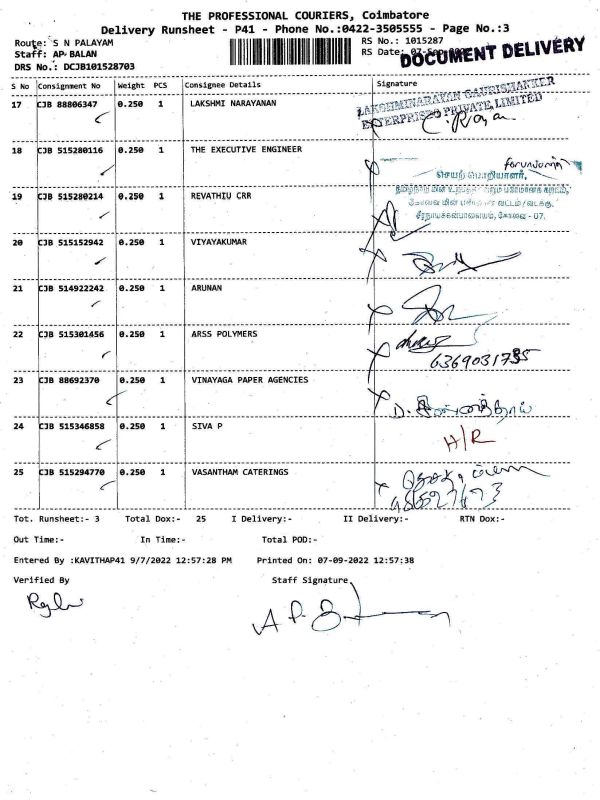 THE PROFESSIONAL COURIERS, Coimbatore
Delivery Runsheet - P41 - Phone No.:0422-3505555 - Page No.:3
Route: S N PALAYAM
RS No.: 1015287
Staff: AP BALAN
RS Date: 07-Sep
DOCUMENT DELIVERY
DRS No.: DCJB101528703
S No Consignment No Weight PCS Consignee Details Signature
17 CJB 88806347 0.250 1 LAKSHMI NARAYANAN
LAKSHMINARAYAN GAURISHANKER
ENTERPRISES PRIVATE LIMITED
18 CJB 515280116 0.250 1 THE EXECUTIVE ENGINEER
செயற் பொறியாளர்,
19 CJB 515280214 0.250 1 REVATHIU CRR
20 CJB 515152942 0.250 1 VIYAYAKUMAR
21 CJB 514922242 1 ARUNAN
22 CJB 515301456 0.250 1 ARSS POLYMERS
6369031735
23 CJB 88692370 0.250 1 VINAYAGA PAPER AGENCIES
24 CJB 515346858 0.250 1 SIVA P
H/R
25 CJB 515294770 0.250 1 VASANTHAM CATERINGS
Tot. Runsheet:- 3 Total Dox:- 25 I Delivery:- II Delivery:- RTN Dox:-
Out Time:- In Time:- Total POD:-
Entered By :KAVITHAP41 9/7/2022 12:57:28 PM Printed On: 07-09-2022 12:57:38
Verified By Staff Signature